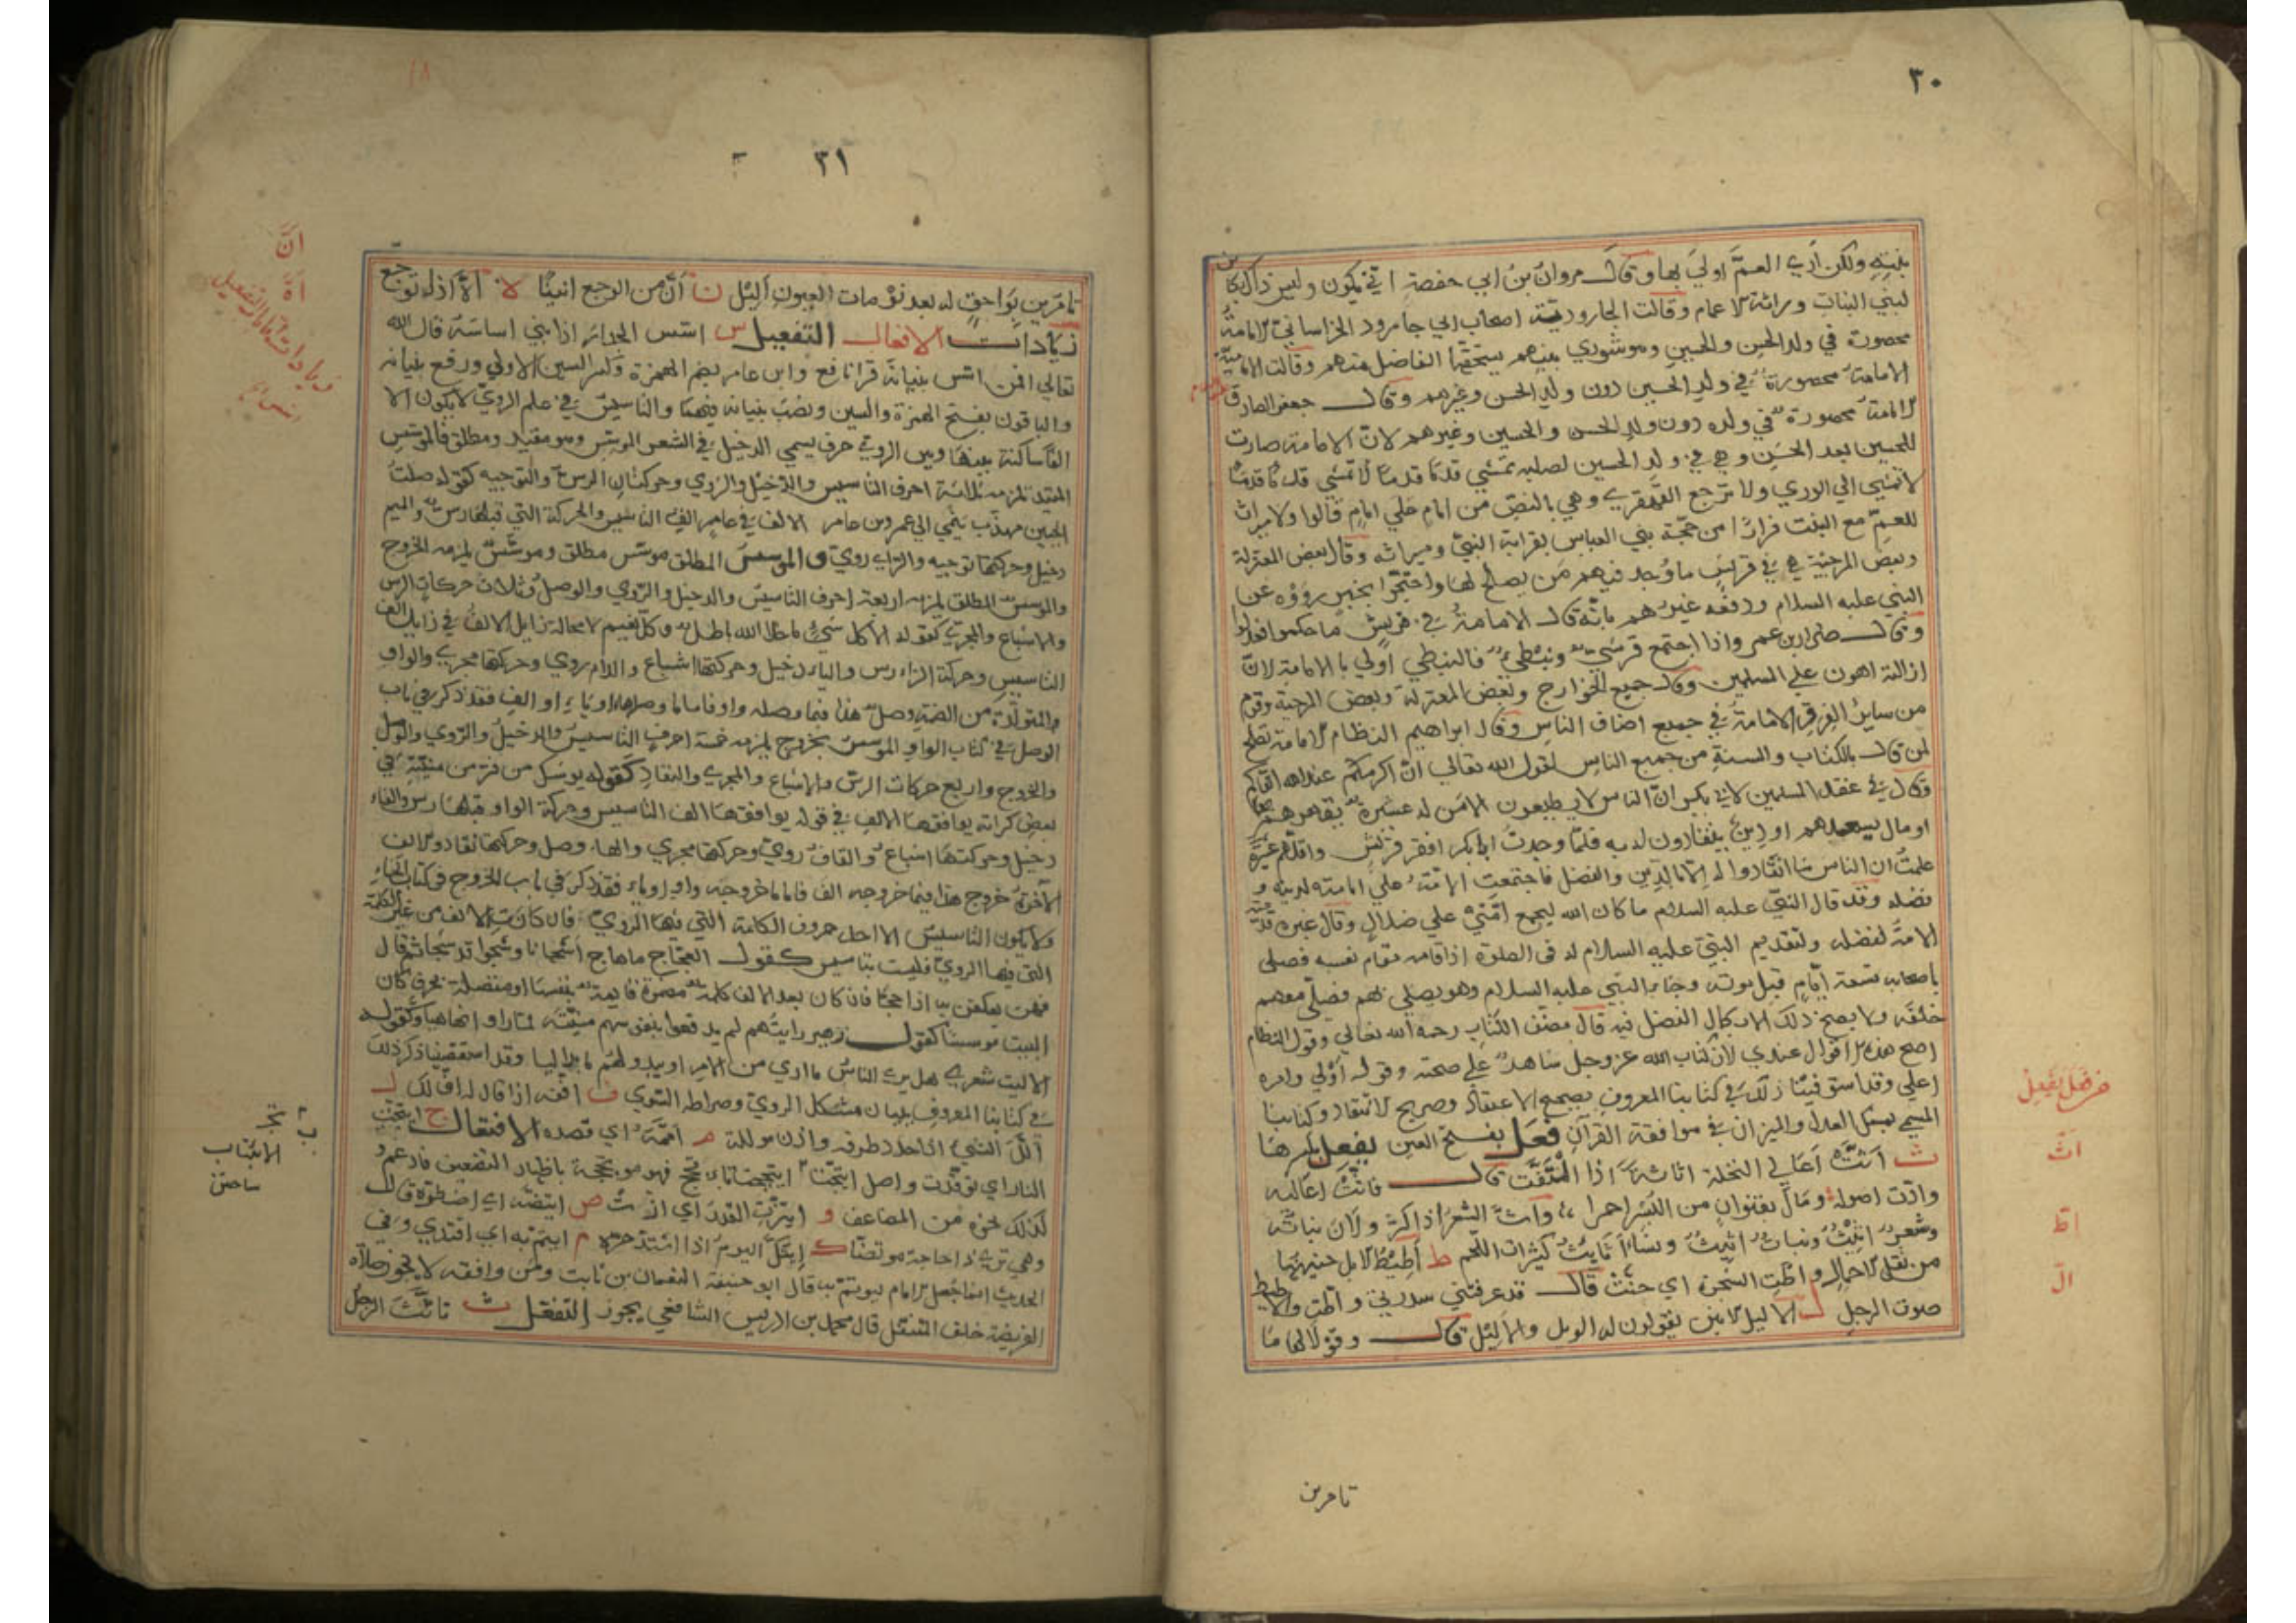 ٣٠
بنيه ولكن أرى العمَّ اولى بها وقال مروان بن ابي حفصة اني يكون وليس ذاك بكائن
لبني البنات وراثة الاعمام وقالت الجارودية اصحاب ابي جارود الخراساني الامامة
محصورة في ولد الحسن والحسين وهو شوري بينهم يستحقها الفاضل منهم وقالت الامامية
الامامة محصورة في ولد الحسين دون ولد الحسن وغيرهم وقال جعفر الصادق
الامامة محصورة في ولده دون ولد الحسن والحسين وغيرهم لان الامامة صارت
للحسين بعد الحسن وهي في ولد الحسين لصلبه تمشي قدمًا قدمًا لا تمشي قدمًا قدمًا
لا تمشي الي الوري ولا ترجع القهقري وهي بالنص من امام علي امام قالوا ولا ميراث
للعم مع البنت فرارًا من حجة بني العباس بقرابة النبي وميراثه وقال بعض المعتزلة
وبعض المرجئة هي في قريش ما وُجد فيهم من يصلح لها واحتجوا بخبر رووه عن
النبي عليه السلام ودفعه غيرهم بانه قال الامامة في قريش ما حكموا فعدلوا
وقال ضرار بن عمر واذا اجتمع قرشي ونبطي فالنبطي اولي بالامامة لان
ازالته اهون علي المسلمين وقال جميع الخوارج وبعض المعتزلة وبعض المرجئة وقوم
من ساير الفرق الامامة في جميع اصناف الناس وقال ابراهيم النظام الامامة تصلح
لمن قال بالكتاب والسنة من جميع الناس لقول الله تعالي ان اكرمكم عند الله اتقاكم
وقال في عقد المسلمين لابي بكر ان الناس لا يطيعون الا من له عشيرة يقهرهم بها
او مال يستعبدهم او دين ينقادون لديه فلما وجدت ابا بكر افقر قريش واقلهم عشيرة
علمت ان الناس ما انقادوا له الا بالدين والفضل فاجتمعت الامة علي امامته لدينه و
فضله وقد قال النبي عليه السلام ما كان الله ليجمع امتي علي ضلال وقال غيره قدمته
الامة لفضله ولتقديم النبي عليه السلام له في الصلوة اذ اقامه مقام نفسه فصلي
باصحابه تسعة ايام قبل موته وجاء النبي عليه السلام وهو يصلي بهم فصلي معهم
خلفه ولا يصح ذلك الا بكمال الفضل فيه قال مصنف الكتاب رحمه الله تعالي وقول النظام
اصح هذه الاقوال عندي لان كتاب الله عز وجل شاهد علي صحته وقوله اولي وامره
اعلي وقد استوفينا ذلك في كتابنا المعروف بصحيح الاعتقاد وصريح الانتقاد وكتابنا
المسمي بمسك العدل والميزان في موافقة القرآن فعَل بفتح العين يفعِل بكسرها
ث اثَّت اعالي النخلة اثاثةً اذا التفت قال فاثت اعاليه
وآدت اصوله ومال بقنوان من البسر احمرا واث الشعر اذا كثر ولان نباته
وشعر اثيث ونبات اثيث ونساء اثايث كثيرات اللحم ط أطيط الابل حنينها
من ثقل الاحمال واطت الشجرة اي حنت قال قد عرفتني سدرتي واطت والاطيط
صوت الرحل ل الاليل الانين يقولون له الويل والاليل قال وقولا لها ما
تامرين
فرفَعَلَ يَفعِلُ
اثّ
اطّ
الّ
٣١
تامرين بوامق له بعد نومات العيون أليل ن أنَّ من الوجع انينًا ه أهَّ اذا توجع
زيادات الافعال التفعيل س اسس الجدار اذا بني اساسه قال الله
تعالي افمن اسس بنيانه قرا نافع وابن عامر بضم الهمزة وكسر السين الاولي ورفع بنيانه
والباقون بفتح الهمزة والسين ونصب بنيانه فيهما والتاسيس في علم الروي لا يكون الا
الفًا ساكنة بينها وبين الروي حرف يسمي الدخيل في الشعر الموسس وهو مقيد ومطلق فالموسس
المقيد تلزمه ثلاثة احرف التاسيس والدخيل والروي وحركتان الرس والتوجيه كقوله صلت
الجبين مهذب ينمي الي عمرو بن عامر الالف في عامر الف التاسيس والحركة التي قبلها رس والميم
دخيل وحركتها توجيه والراء روي والموسس المطلق موسس مطلق وموسس يلزمه الخروج
والموسس المطلق يلزمه اربعة احرف التاسيس والدخيل والروي والوصل وثلاث حركات الرس
والاشباع والمجري كقوله الا كل شيء ما خلا الله باطل وكل نعيم لا محالة زايل الالف في زايل الف
التاسيس وحركة الزاء رس والياء دخيل وحركتها اشباع واللام روي وحركتها مجري والواو
المتولدة من الضمة وصل هذا فيما وصله واو فاما ما وصله هاء او ياء او الف فقد ذكر في باب
الوصل في كتاب الواو الموسس بخروج يلزمه خمسة احرف التاسيس والدخيل والروي والوصل
والخروج واربع حركات الرس والاشباع والمجري والنفاذ كقوله يوشك من فر من منيته في
بعض غراته يوافقها الالف في قوله يوافقها الف التاسيس وحركة الواو قبلها رس والفاء
دخيل وحركتها اشباع والقاف روي وحركتها مجري والهاء وصل وحركتها نفاد والالف
الآخرة خروج هذا فيما خروجه الف فاما ما خروجه واو او ياء فقد ذكر في باب الخروج في كتاب الخاء
ولا يكون التاسيس الا احد حروف الكلمة التي فيها الروي فان كانت الالف من غير الكلمة
التي فيها الروي فليست بتاسيس كقول العجاج ما هاج اشجانا وشجوا قد شجا ثم قال
فهن يعكفن به اذا حجا فان كان بعد الالف كلمة مضمرة قايمة بنفسها او متصلة بحرف كان
البيت موسسًا كقول زهير رايتهم لم يدفعوا بنفوسهم منيته لما راوا انها هيا وكقوله
الا ليت شعري هل يري الناس ما اري من الامر او يبدو لهم ما بدا ليا وقد استقصينا ذكر ذلك
في كتابنا المعروف ببيان مشكل الروي وصراطه السوي ف اففه اذا قال له اف لك ل
ألَّل الشيء اذا حدد طرفه واذن مؤللة م اممه اي قصده الافتعال ج ايتجت
النار اي توقدت واصل ايتج
لذلك نحوه من المضاعف و ايتزت القدر اي ازت ض ايتضه اي اضطره قال
وهي تري ذا حاجة موتضا ك ايتك اليوم اذا اشتد حره م ايتم به اي اقتدي وفي
الحديث انما جعل الامام ليوتم به قال ابو حنيفة النعمان بن ثابت ومن وافقه لا يجوز صلاة
الفريضة خلف المتنفل قال محمد بن ادريس الشافعي يجوز التفعّل ث تاثّث الرجل
انَّ
اهَّ
زيادات الافعال التفعيل